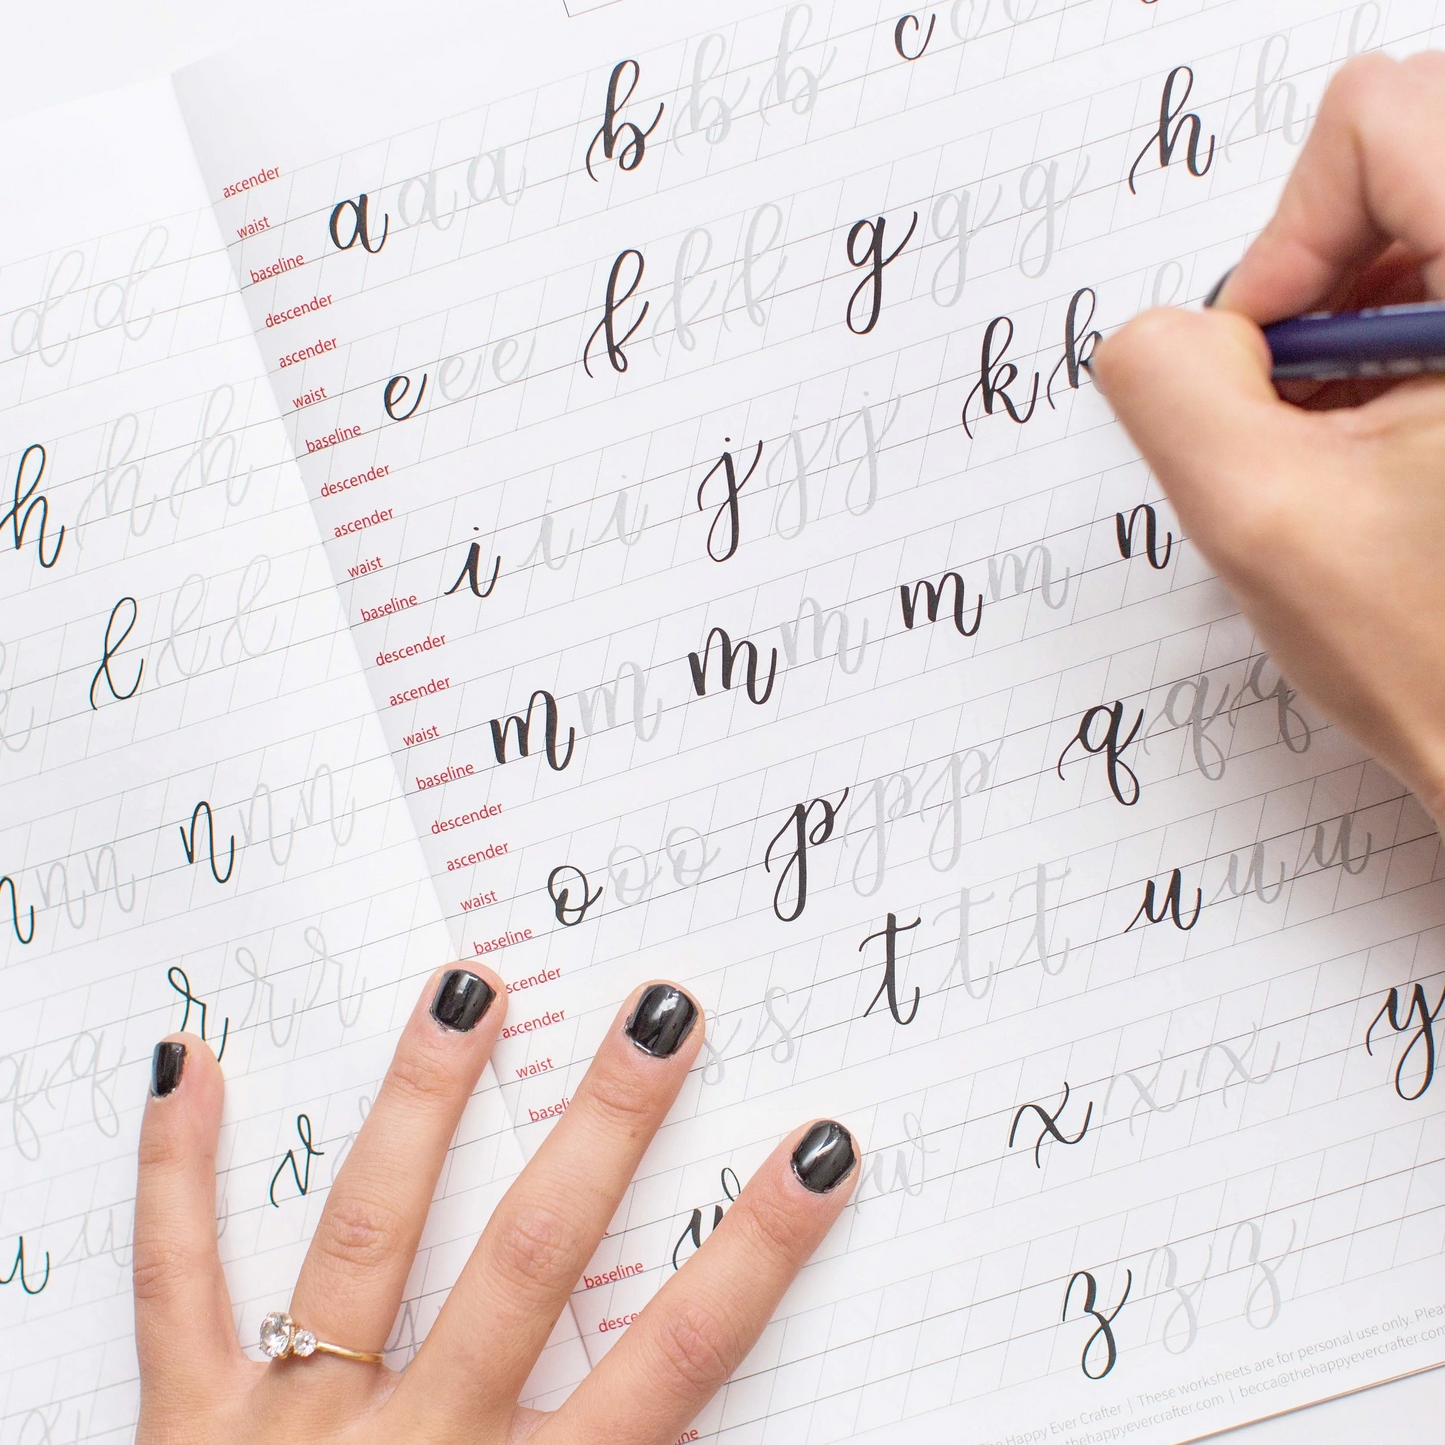 d d
h h h
l l l l
n n n n n n
q q r r r
u u v
ascender
waist
baseline a a a b b b c c
descender
ascender
waist
baseline e e e f f f g g g h h h
descender
ascender
waist
baseline i i i j j j k k k
descender
ascender
waist
baseline m m m m m m n
descender
ascender
waist
baseline o o o p p p q q q
scender
ascender
waist
baseli s s t t t u u u
baseline w w x x x y
desce
z z z
The Happy Ever Crafter | These worksheets are for personal use only. Pleas
thehappyevercrafter.com | becca@thehappyevercrafter.com